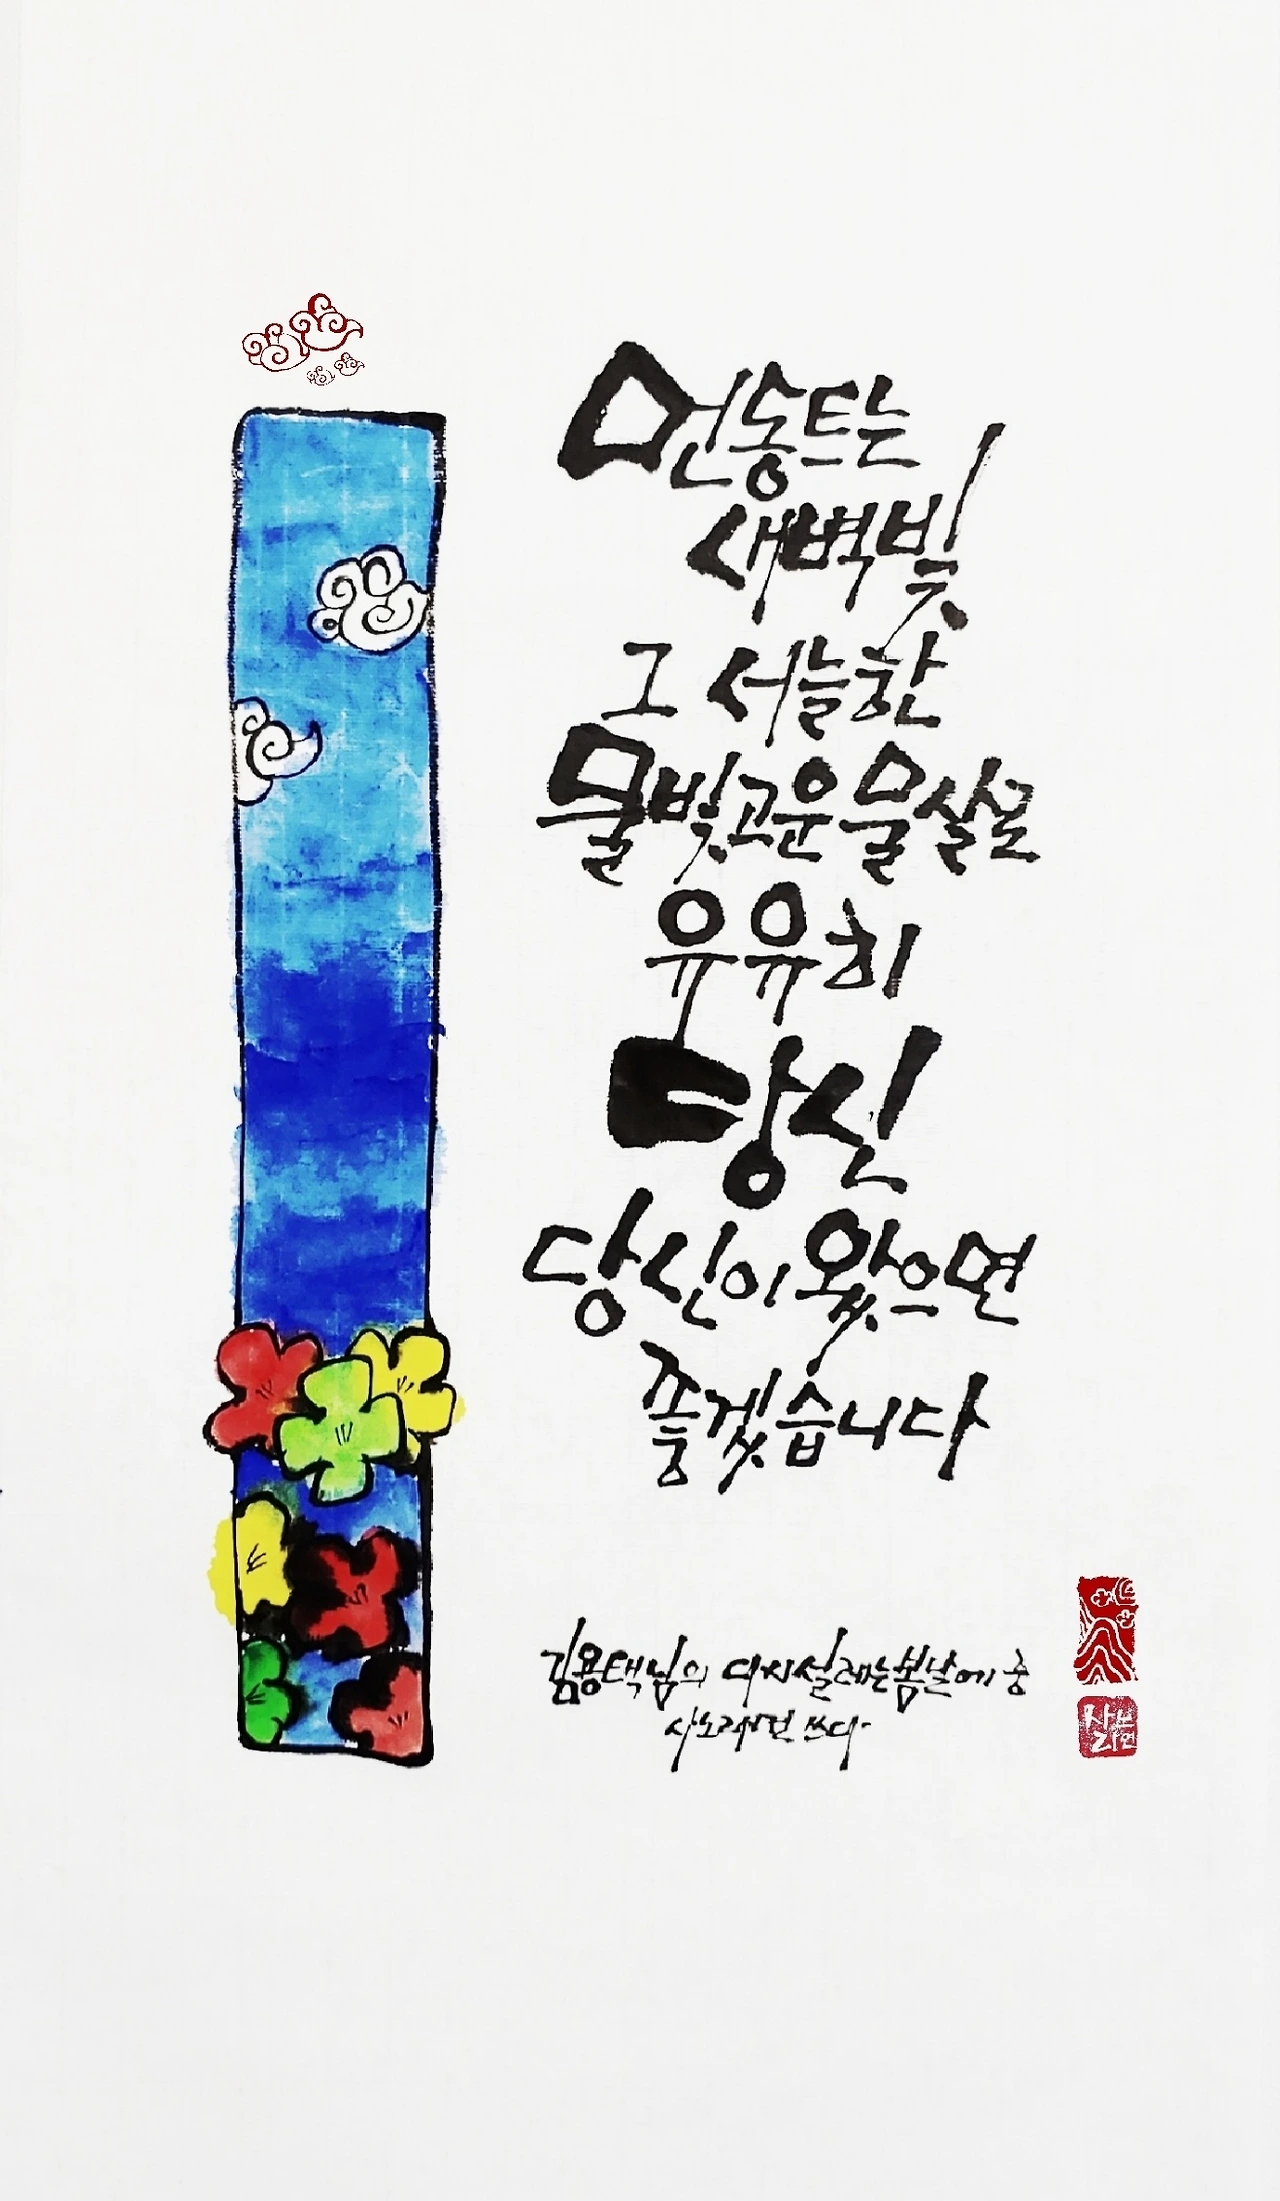 먼동트는
새벽빛
그 서늘한
물빛고운 물살로
유유히
당신
당신이 왔으면
좋겠습니다
김용택님의 다시설레는봄날에 중
쓰다